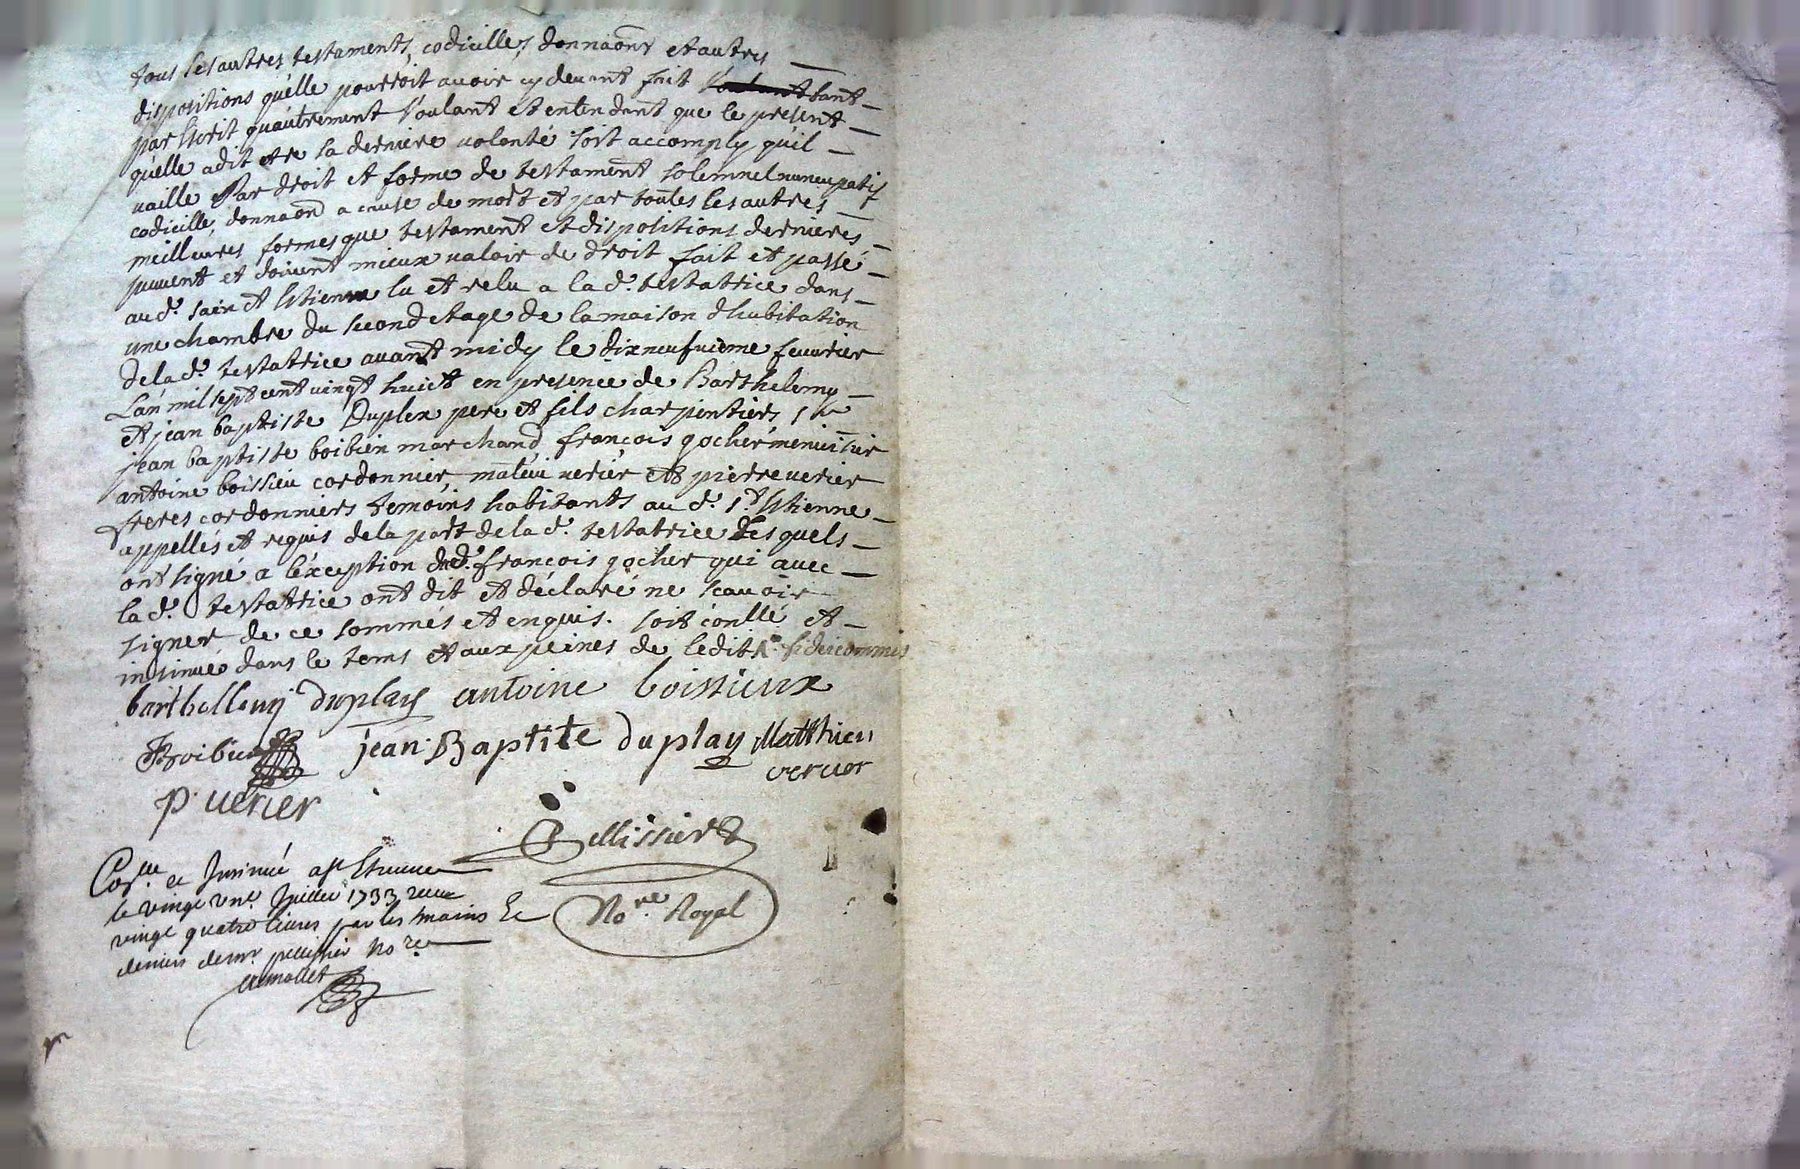 tous les autres testaments, codicilles, donnaõns et autres
dispositions qu'elle pourroit avoir cy devant fait tant
par Escrit qu'autrement Voulant et entendant que le present
qu'elle a dit etre sa derniere volonté soit accomply qu'il
vaille Par droit et forme de testament solemnel nuncupatif
codicille, donnaõn a cause de mort et par toutes les autres
meilleures formes que testament et dispositions dernieres
peuvent et doivent mieux valoir de droit fait et passé
aud. sainct Estienne lu et relu a lad. testatrice dans
une chambre du second etage de la maison d'habitation
de lad. testatrice avant midy le dixneufvieme fevrier
L'an mil sept cent vingt huict en presence de Barthelemy
et jean baptiste Duplex pere et fils charpentiers, sr
jean baptiste boibien marchand, françois gocher menuisier
antoine boissieu cordonnier, mateui verier et pierre verier
freres cordonniers temoins habitants aud. St. Estienne
appellés et requis de la part de lad. testatrice Lesquels
ont signé a l'exception dud. françois gocher qui avec
lad. testatrice ont dit et déclaré ne scavoir
signer de ce sommés et enquis. soit conllé et
insinué dans le tems et aux peines de l'edit
barthellemy duplay antoine boissieux
jean Baptite duplay Matthieu
verier
P. verier
Pellissier
No.re Royal
Con.lle et Insinué a St Etienne
le vingt une Juillet 1733 receu
vingt quatre livres par les mains Et
deniers de mr pellissier No.re